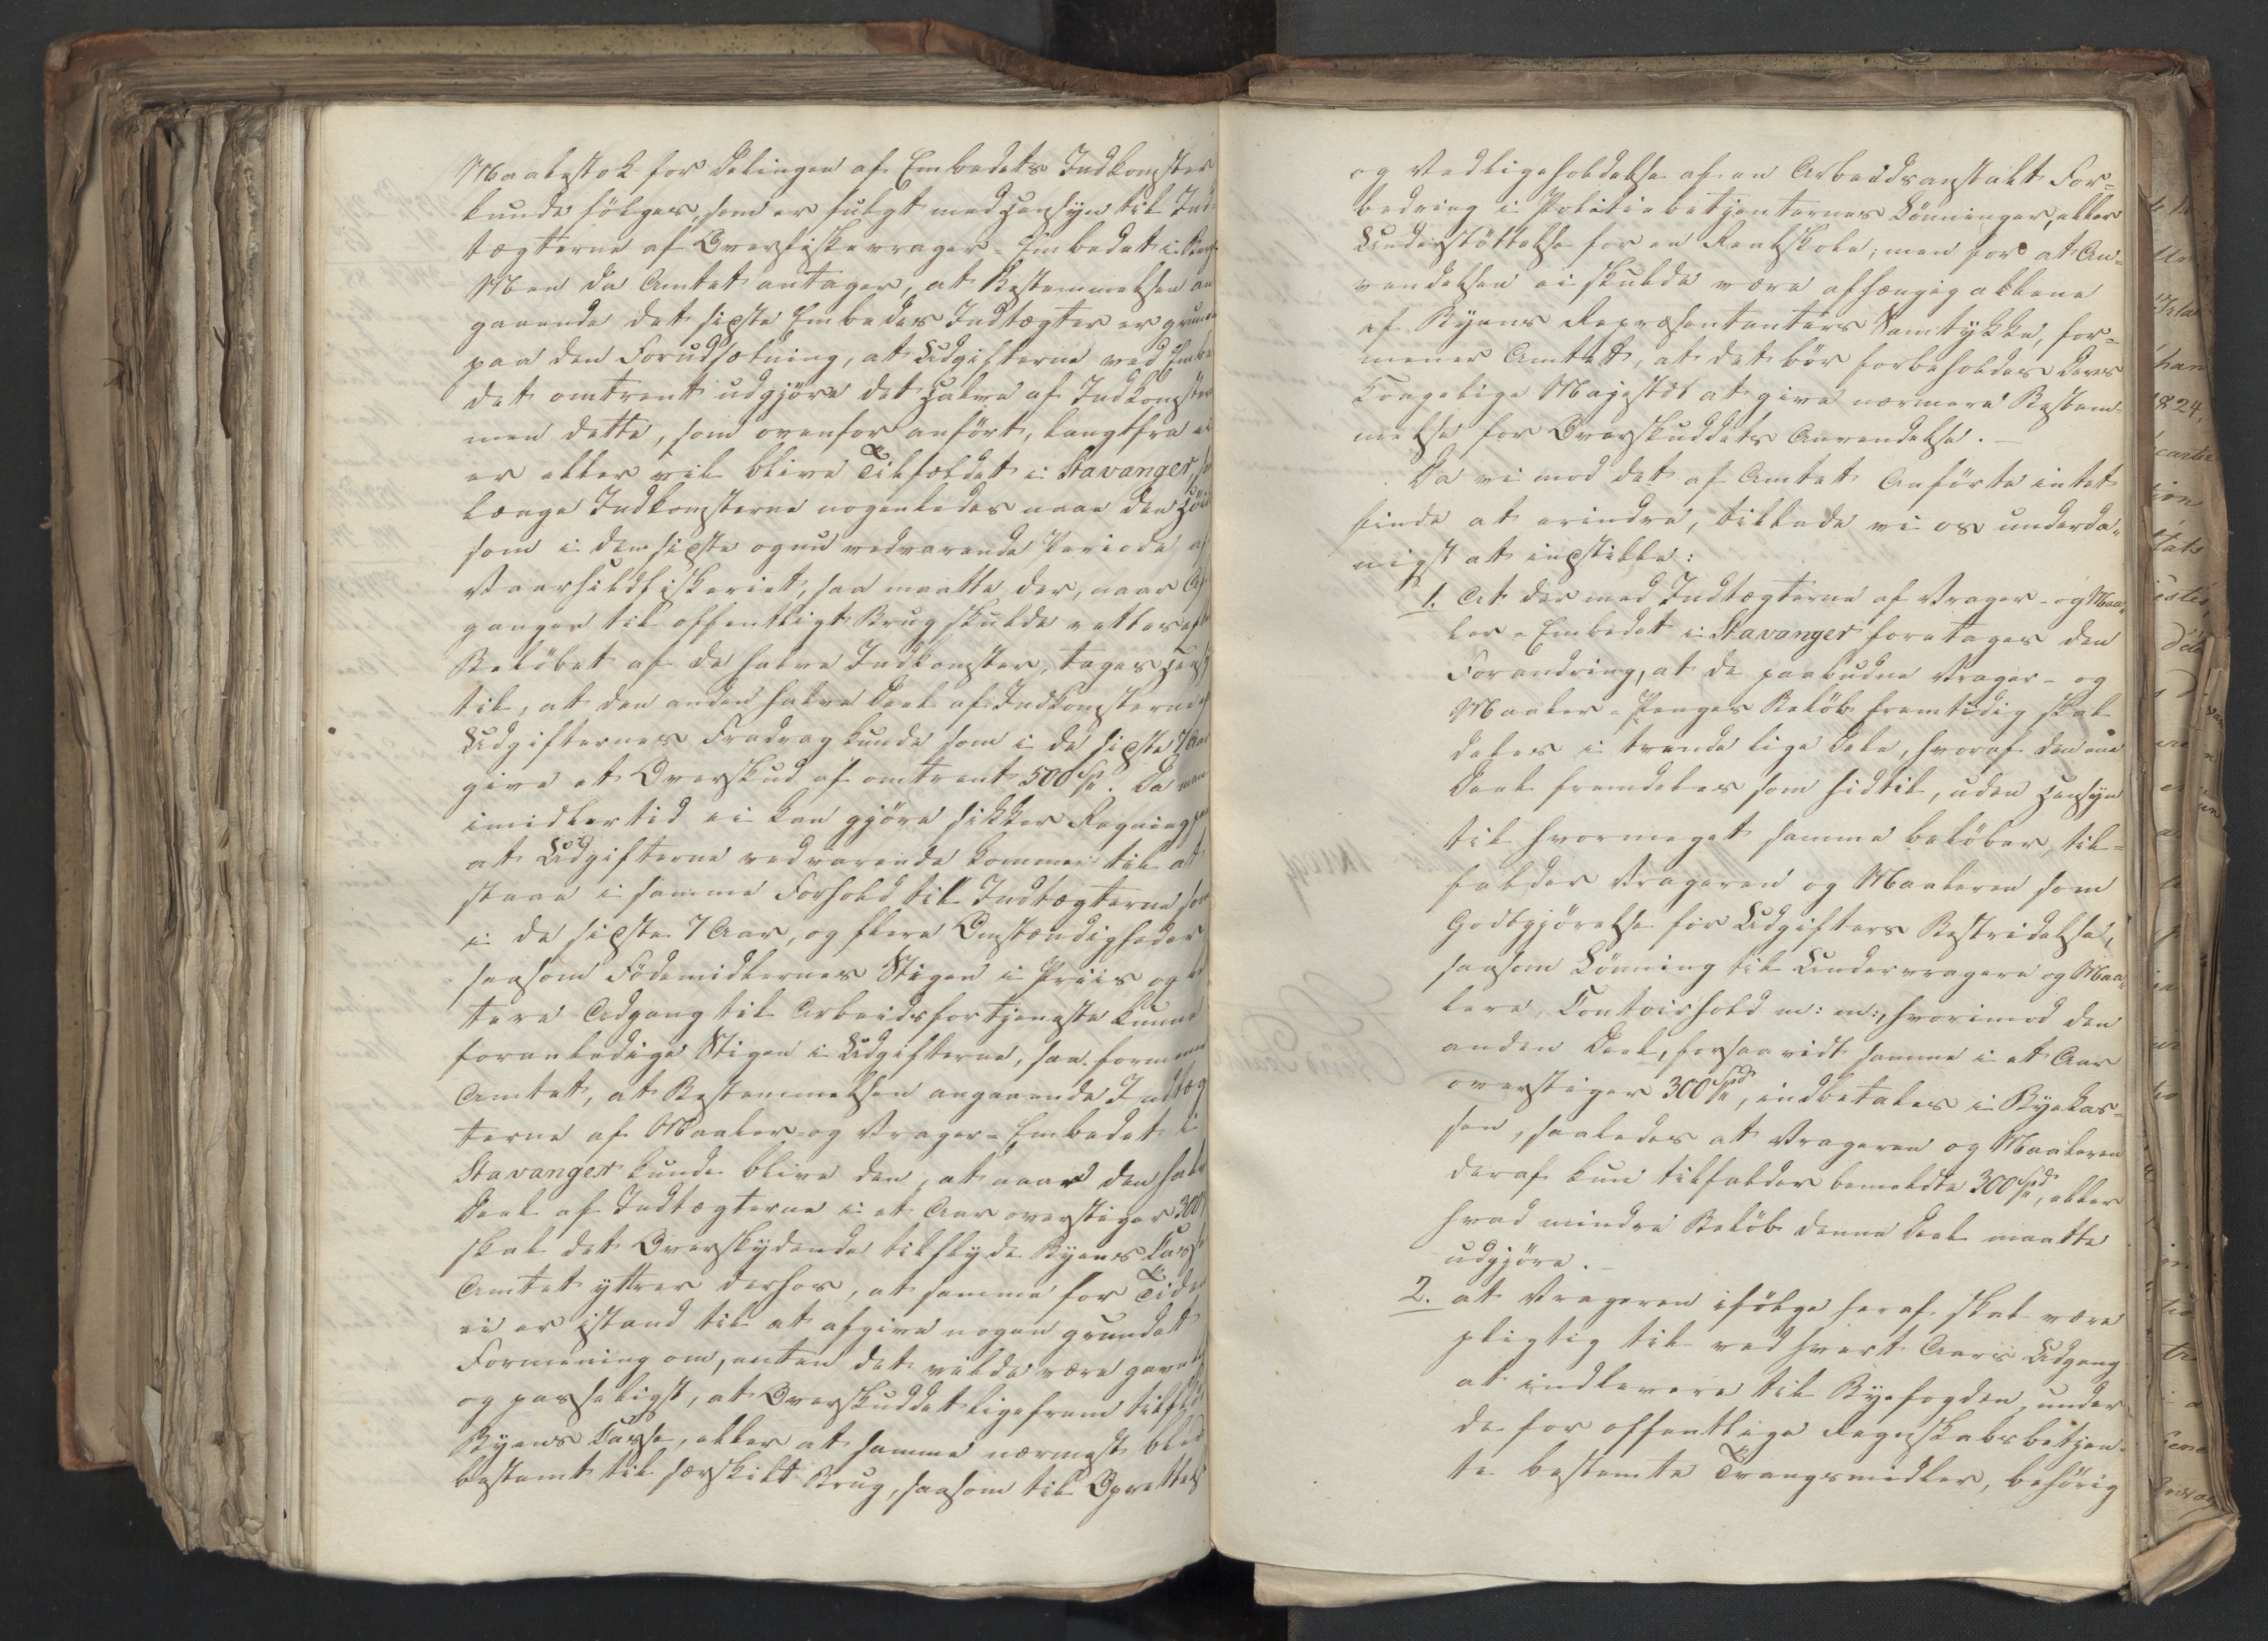 Maalestok for Delingen af Embedets Indkomster
kunde følges, som er fulgt med Hensyn til Ind-
tægterne af Overfiskevrager-Embedet i
Men da Amtet antager, at Bestemmelsen an
gaaende det sidste Embedes Indtægter er grund
paa den Forudsætning, at Udgifterne ved Embe
det omtrent udgjøre det Halve af Indkomster
men dette, som ovenfor anført, langtfra ei
er eller vil blive Tilfældet i Stavanger, so
længe Indkomsterne nogenledes naae den Høi
som i den sidste og nu vedvarende Periode af
Vaarsildfiskeriet, saa maatte der, naar Af
gangen til offentligt Brug skulde rettes eft
Beløbet af de halve Indkomster, tages Hensy
til, at den anden halve Deel af Indkomsterne ef
Udgifternes Fradrag kunde som i de sidste 7 Aar
give et Overskud af omtrent 500 Sp. Da man
imidlertid ei kan gjøre sikker Regning paa
at Udgifterne vedvarende kommer til at
staae i samme Forhold til Indtægterne som
i de sidste 7 Aar, og flere Omstændigheder
saasom Fødemidlernes Stigen i Priis og let
tere Adgang til Arbeidsfortjeneste kunne
foranledige Stigen i Udgifterne, saa formener
Amtet, at Bestemmelsen angaaende Indtæg
terne af Maaler- og Vrager-Embedet i
Stavanger kunde blive den, at naar den halv
Deel af Indtægterne i et Aar overstiger 300
skal det Overskydende tilflyde Byens Casse
Amtet yttrer derhos, at samme for Tiden
ei er istand til at afgive nogen grundet
Formening om, enten det vilde være gavnl
og passeligst, at Overskuddet ligefrem tilflød
Byens Casse, eller at samme nærmest blev
bestemt til særskilt Brug, saasom til Oprettels
og Vedligeholdelse af en Arbeidsanstalt For-
bedring i Politiebetjenternes Lønninger, eller
Understøttelse for en Realskole; men for at An-
vendelsen ei skulde være afhængig allene
af Byens Repræsentanters Samtykke, for-
mener Amtet, at det bør forbeholdes Deres
Kongelige Majestæt at give nærmere Bestem-
melse for Overskuddets Anvendelse. —
Da vi mod det af Amtet Anførte intet
finde at erindre, tillade vi os underda-
nigst at indstille:
1. At der med Indtægterne af Vrager- og Maa-
ler-Embedet i Stavanger foretages den
Forandring, at de paabudne Vrager- og
Maaler-Penges Beløb framtidig skal
deles i tvende lige Dele, hvoraf den ene
Deel fremdeles som hidtil, uden Hensyn
til hvormeget samme beløber, til-
falder Vrageren og Maaleren som
Godtgjørelse for Udgifters Bestridelse,
saasom Lønning til Undervragere og Maa-
lere, Contoirhold m: m:, hvorimod den
anden Deel, forsaavidt samme i et Aar
overstiger 300 Spd, indbetales i Byekas-
sen, saaledes at Vrageren og Maaleren
deraf kun tilfalder bemeldte 300 Spd, eller
hvad mindre Beløb denne Deel maatte
udgjøre. —
2. at Vrageren ifølge heraf skal være
pligtig til ved hvert Aars Udgang
at indlevere til Byefogden, under
de for offentlige Regnskabsbetjen-
te bestemte Tvangsmidler, behørig